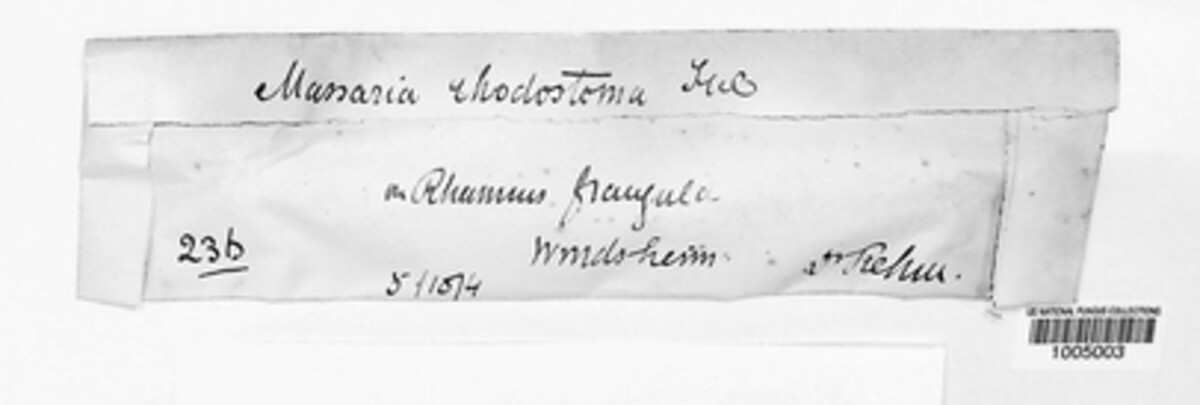 Massaria rhodostoma
on Rhamnus frangula
Windsheim. Dr Rehm.
23b
US NATIONAL FUNGUS COLLECTIONS
1005003